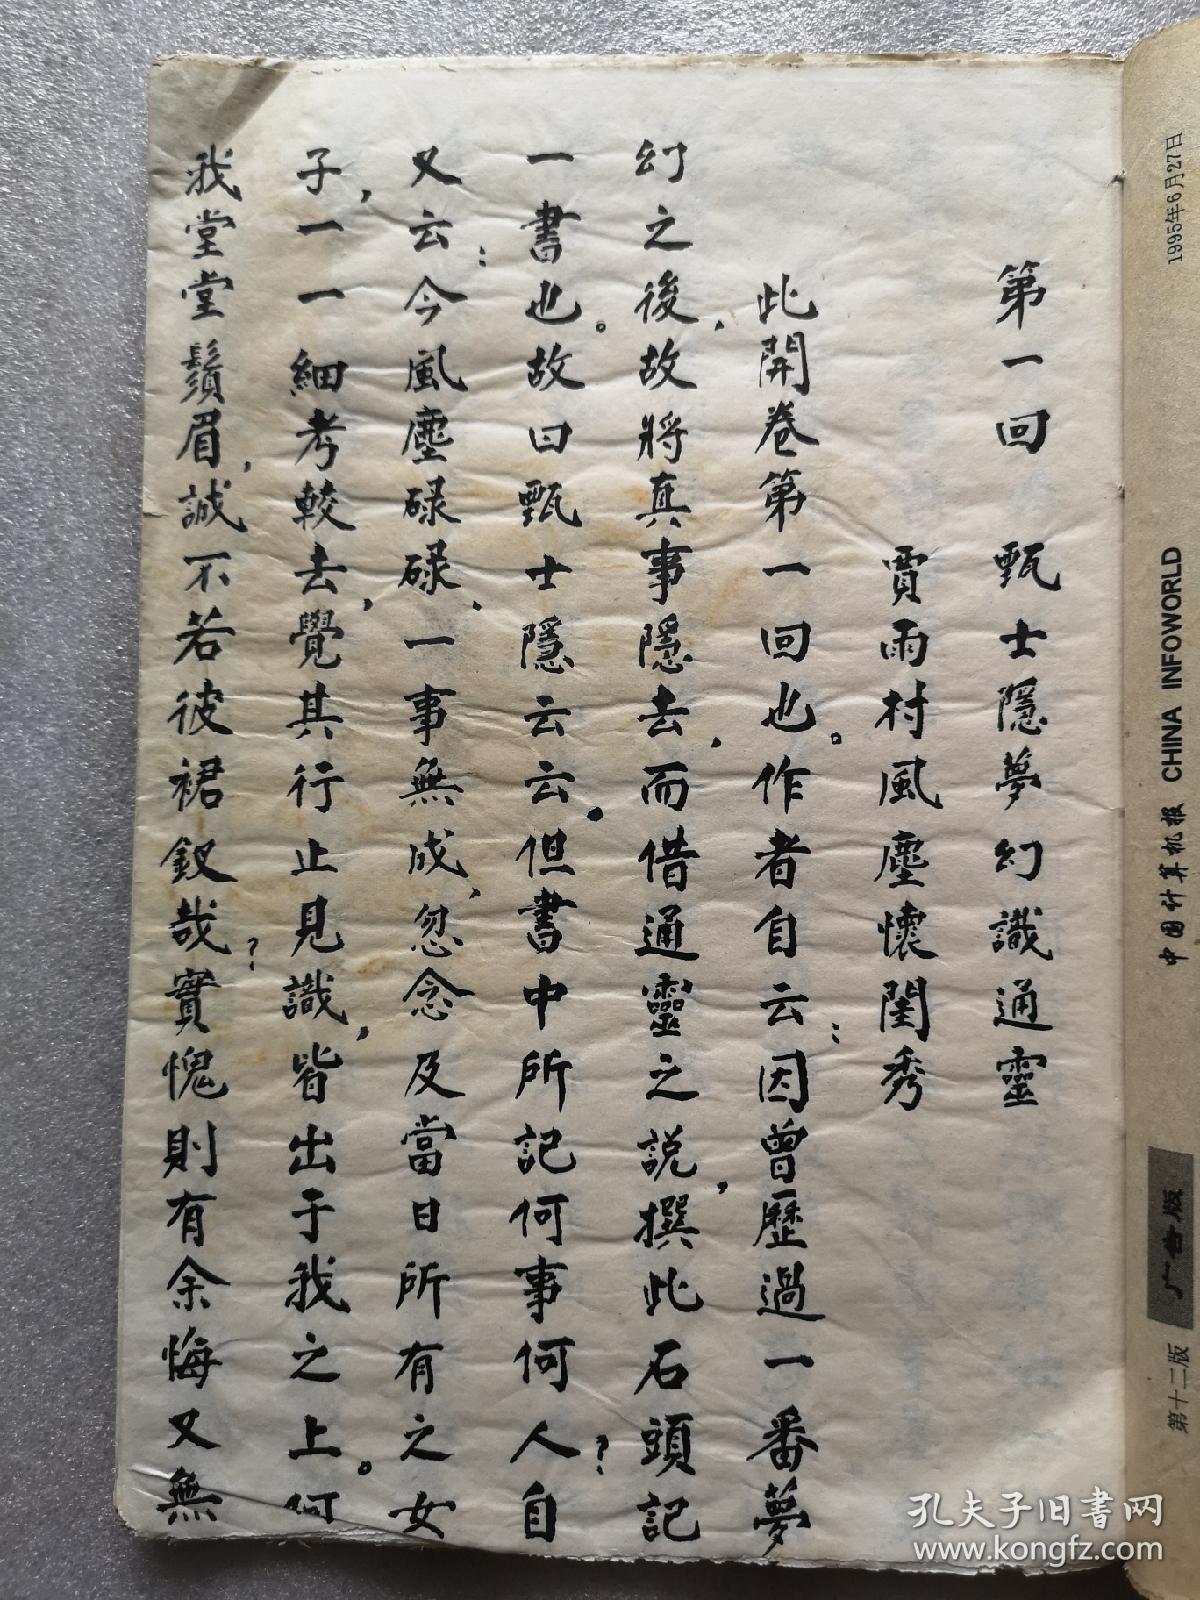 第一回　甄士隱夢幻識通靈
賈雨村風塵懷閨秀
此開卷第一回也。作者自云：因曾歷過一番夢
幻之後，故將真事隱去，而借通靈之說，撰此石頭記
一書也。故曰甄士隱云云。但書中所記何事何人？自
又云：今風塵碌碌，一事無成，忽念及當日所有之女
子，一一細考較去，覺其行止見識，皆出于我之上。何
我堂堂鬚眉，誠不若彼裙釵哉？實愧則有余悔又無
1995年6月27日
中国计算机报 CHINA INFOWORLD
广告版
第十二版
孔夫子旧书网
www.kongfz.com